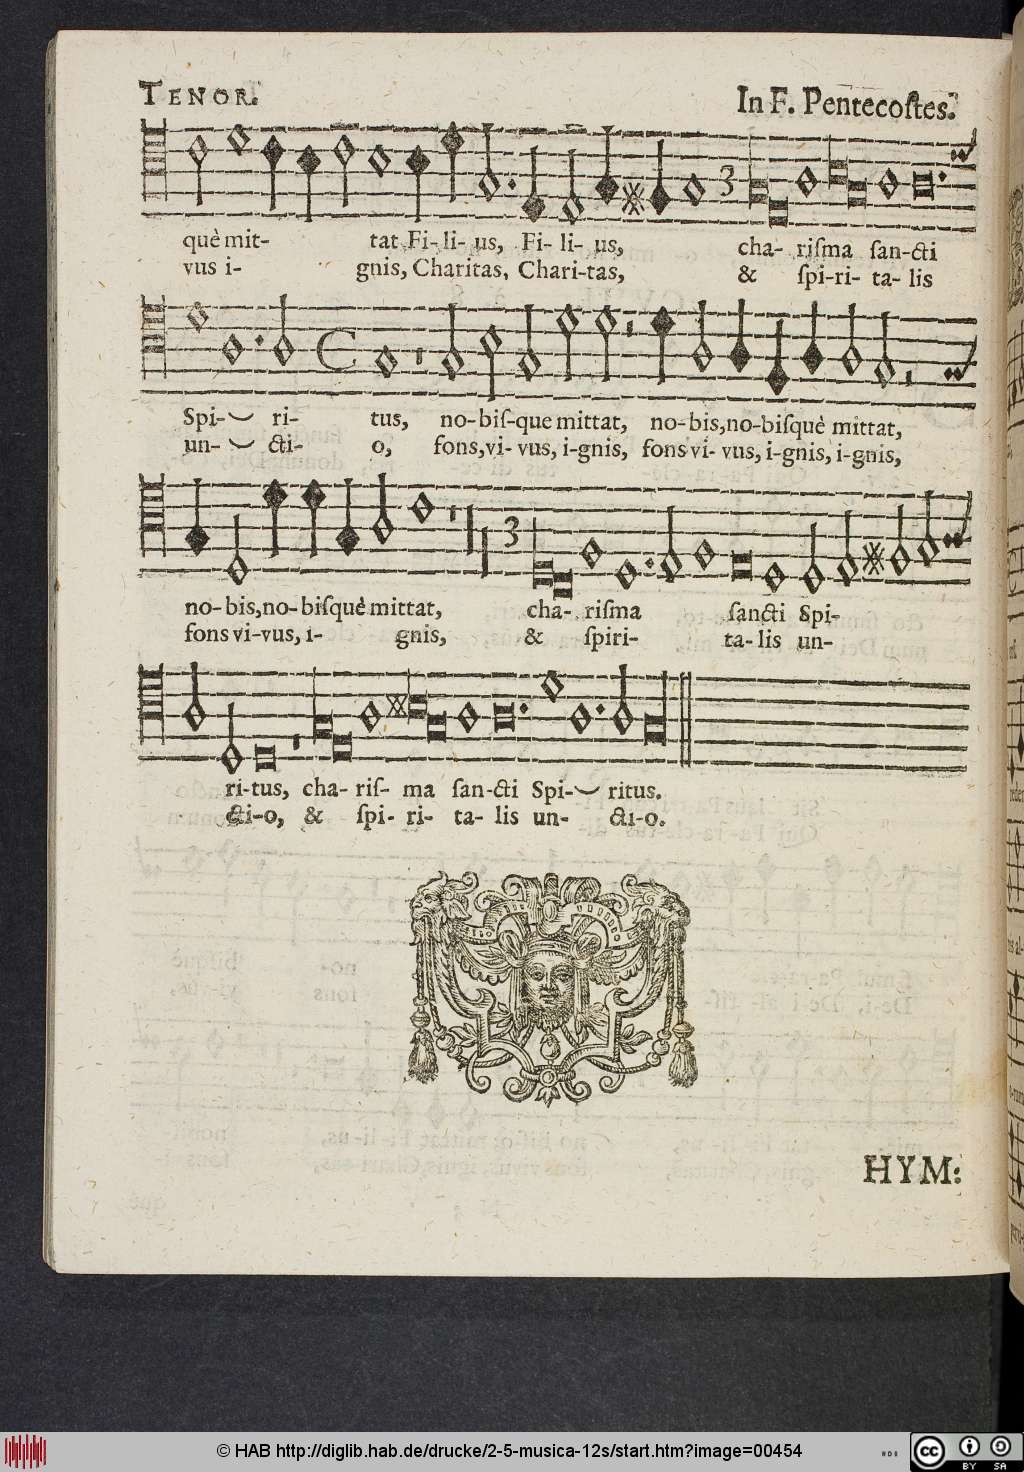 TENOR.
In F. Pentecoſtes.
què mit- tat Fi- li- us, Fi- li- us, cha- riſma ſan-cti
vus i- gnis, Charitas, Chari-tas, & ſpi-ri- ta- lis
3
Spi- ri- tus, no-biſ-que mittat, no-bis,no-biſquè mittat,
un- cti- o, fons,vi- vus, i-gnis, fons vi- vus, i-gnis, i-gnis,
C
no- bis,no-biſquè mittat, cha- riſma ſancti Spi-
fons vi-vus, i- gnis, & ſpiri- ta-lis un-
3
ri-tus, cha- riſ- ma ſan-cti Spi- ritus.
cti-o, & ſpi- ri- ta- lis un- cti-o.
HYM:
© HAB http://diglib.hab.de/drucke/2-5-musica-12s/start.htm?image=00454
cc BY SA